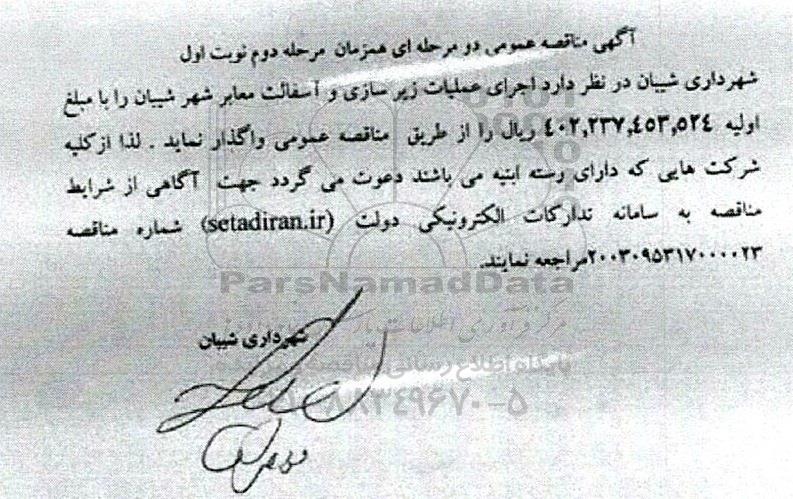 آگهی مناقصه عمومی دو مرحله ای همزمان مرحله دوم نوبت اول
شهرداری شیبان در نظر دارد اجرای عملیات زیر سازی و آسفالت معابر شهر شیبان را با مبلغ
اولیه ۴۰۲,۲۳۷,۴۵۳,۵۲۴ ریال را از طریق مناقصه عمومی واگذار نماید . لذا ازکلیه
شرکت هایی که دارای رسته ابنیه می باشند دعوت می گردد جهت آگاهی از شرایط
مناقصه به سامانه تدارکات الکترونیکی دولت (setadiran.ir) شماره مناقصه
۲۰۰۳۰۹۵۳۱۷۰۰۰۰۲۳مراجعه نمایند.
ParsNamadData
مرکز فرآوری اطلاعات پارس
شهرداری شیبان
پایگاه اطلاع رسانی مناقصه
۸۸۳۴۹۶۷۰-۵